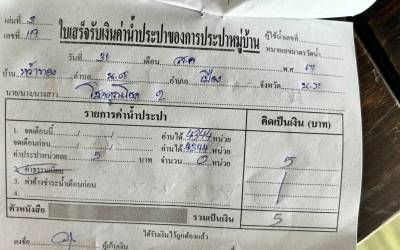 เล่มที่ 3
เลขที่ 119
ใบเสร็จรับเงินค่าน้ำประปาของการประปาหมู่บ้าน
ผู้ใช้น้ำเลขที่
หมายเลขมาตรวัดน้ำ
วันที่ 31 เดือน ส.ค. พ.ศ. 67
บ้าน ตำบล น.ส. อำเภอ เมือง จังหวัด
นาย/นาง/นางสาว 2
รายการค่าน้ำประปา คิดเป็นเงิน (บาท)
1. จดเดือนนี้ / / อ่านได้ 4344 หน่วย
จดเดือนก่อน / / อ่านได้ 4344 หน่วย
ค่าประปาหน่วยละ 5 บาท จำนวน 0 หน่วย 5
3. ค่าธรรมเนียม
4. ค่าค้างชำระน้ำเดือนก่อน
ตัวหนังสือ รวมเป็นเงิน 5
ได้รับเงินไว้ถูกต้องแล้ว
ลงชื่อ ผู้เก็บเงิน